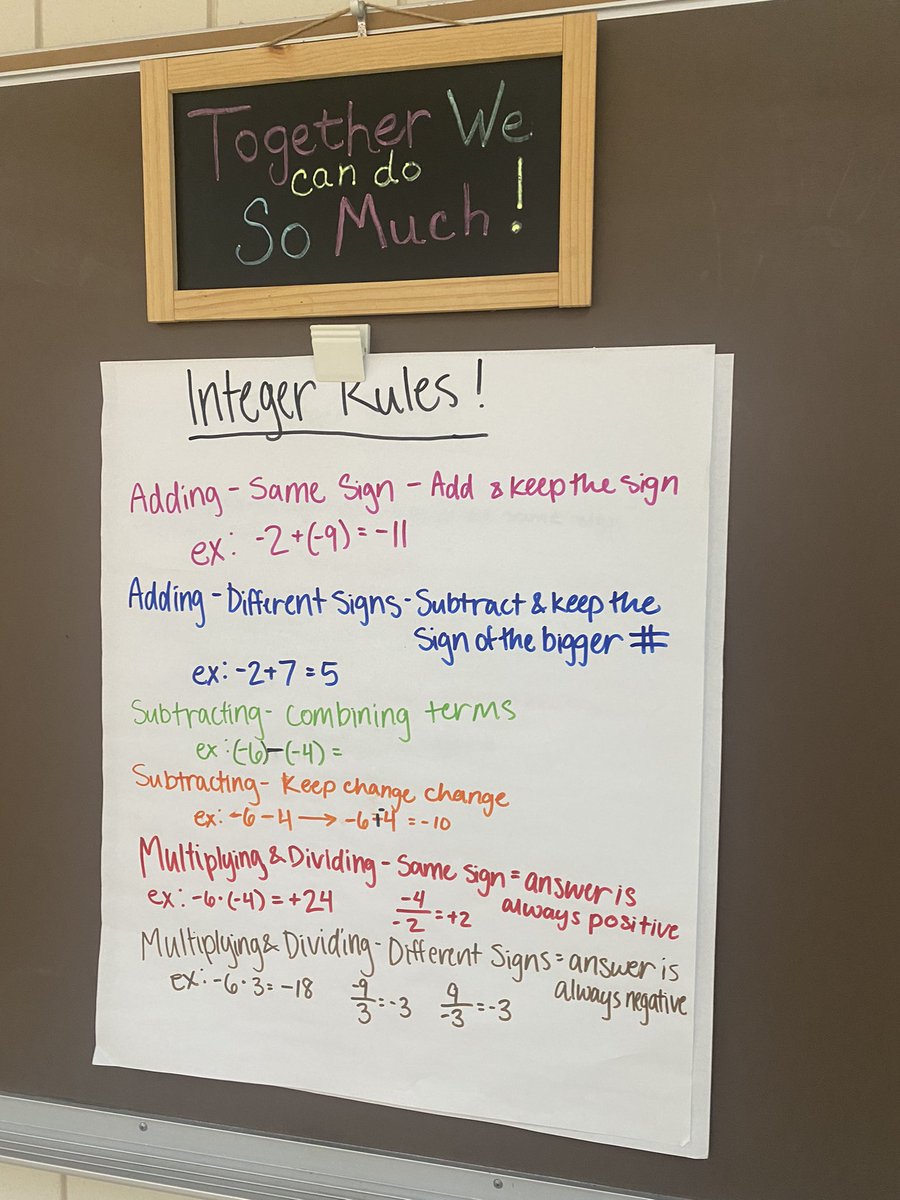 Together We
can do
So Much!
Integer Rules!
Adding - Same Sign - Add & keep the sign
ex: -2+(-9)=-11
Adding - Different Signs - Subtract & keep the
Sign of the bigger #
ex: -2+7=5
Subtracting - Combining terms
ex: (-6)-(-4)=
Subtracting - Keep change change
ex: -6-4 → -6+-4 = -10
Multiplying & Dividing - Same sign = answer is
always positive
ex: -6·(-4)=+24 -4/-2=+2
Multiplying & Dividing - Different Signs = answer is
always negative
ex: -6·3=-18 -9/3=-3 9/-3=-3